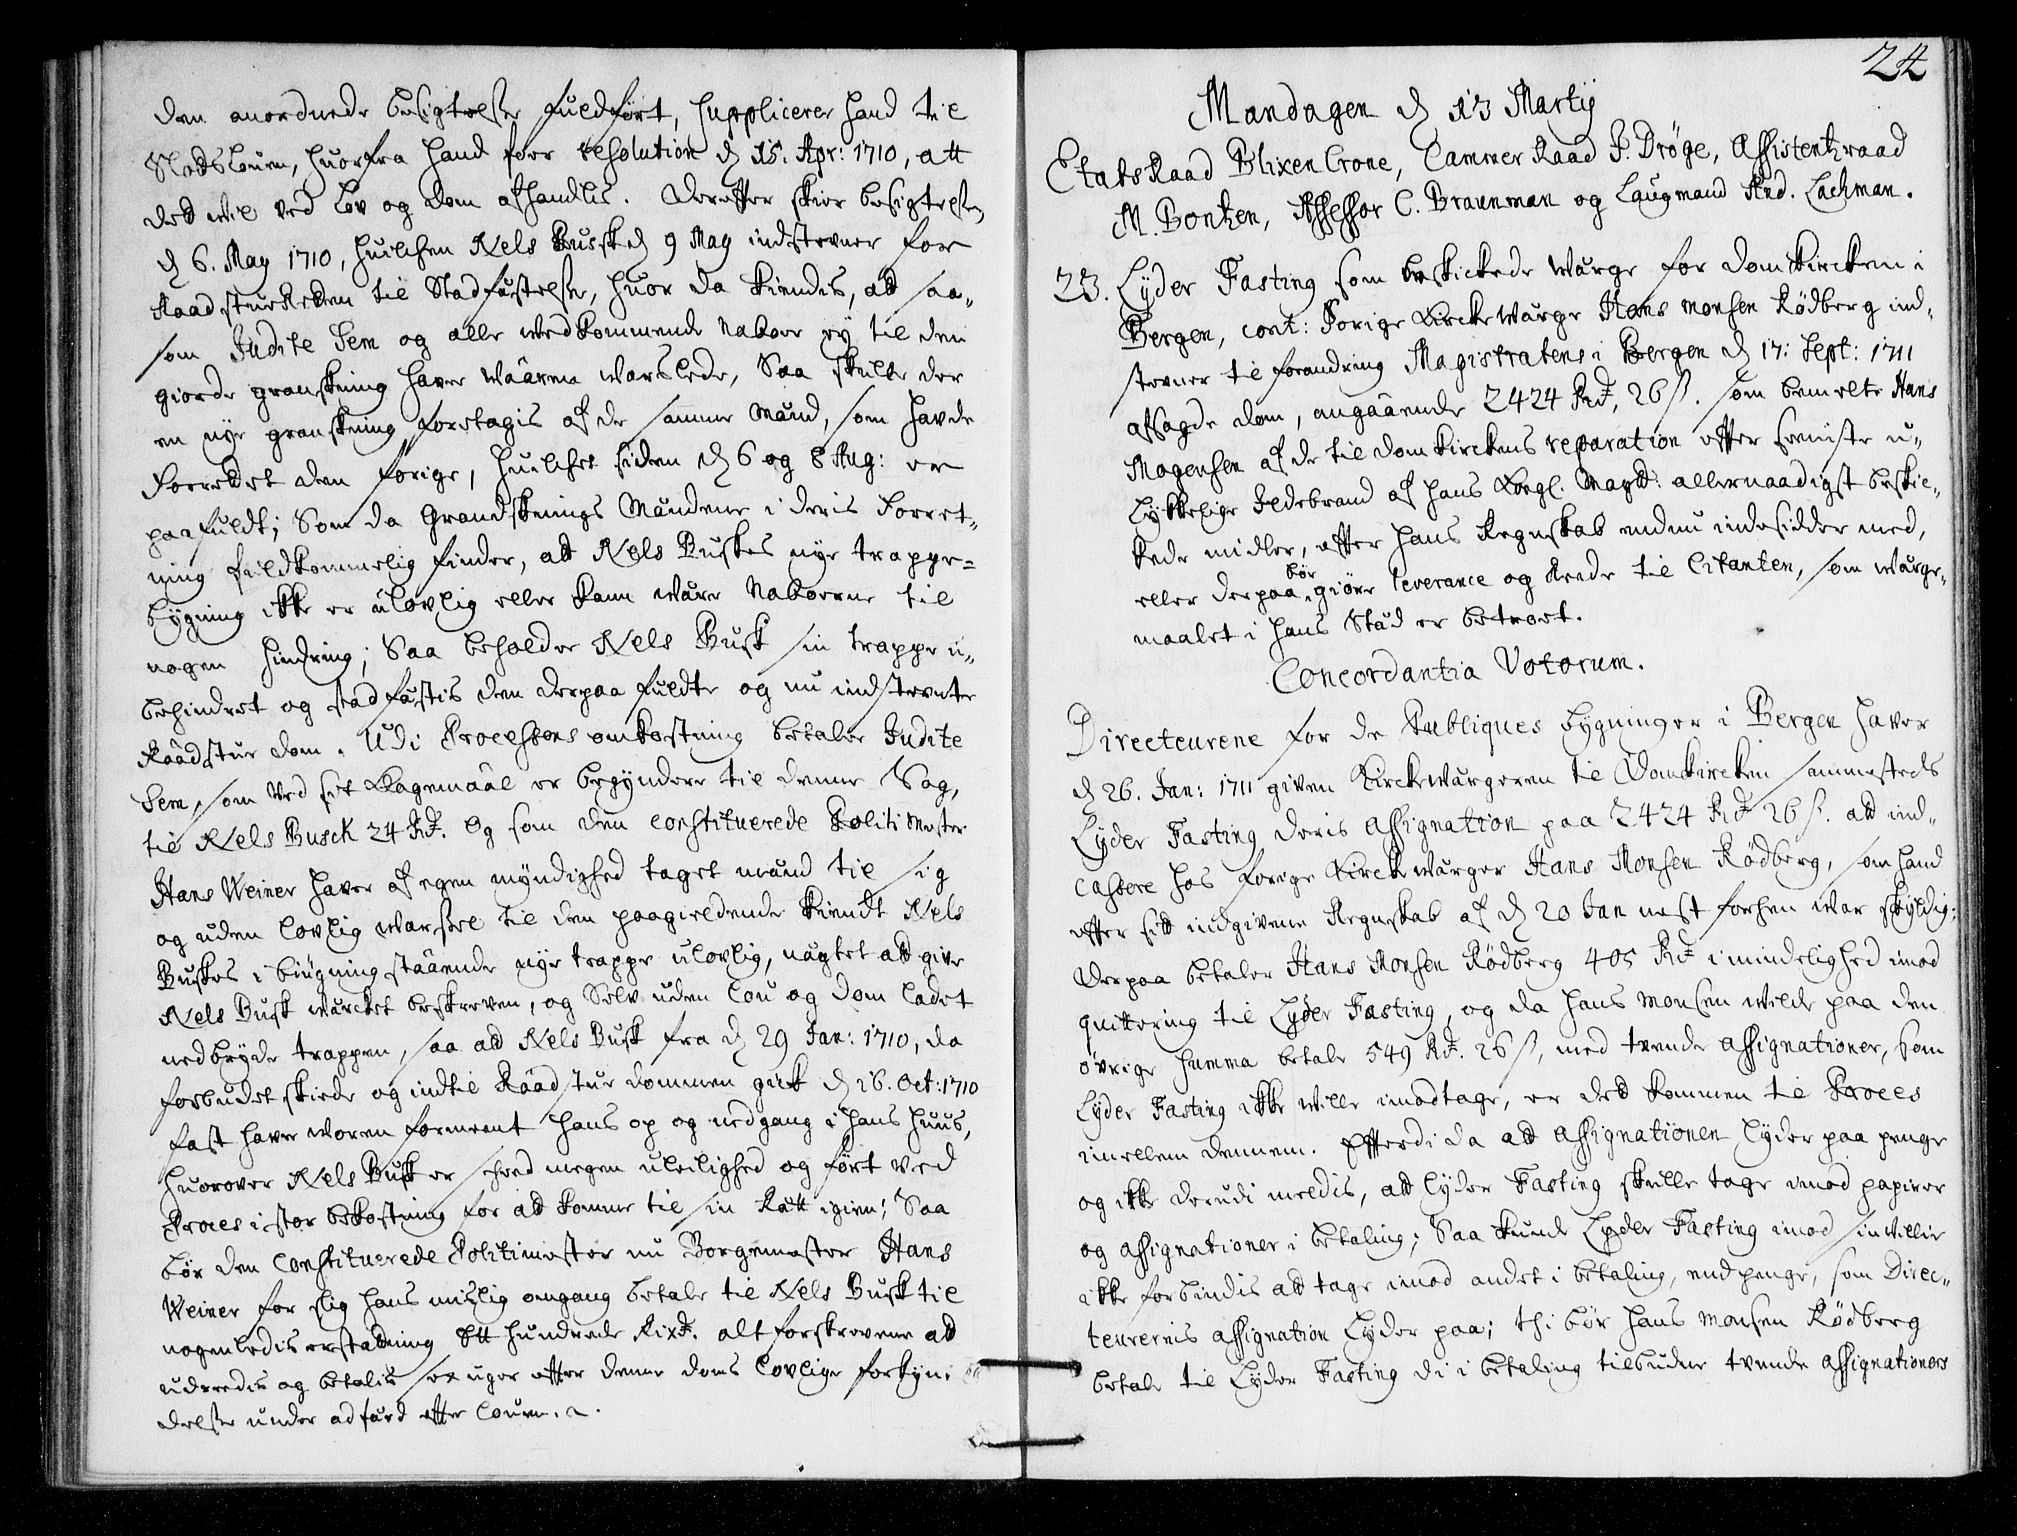 den anordnede besigtelse fuldført, Suppliceres hand til
Slodsloven, huorfra hand faar resolution d 15. Apr: 1710, att
det wil ved Lov og dom afhandlis. Derefter skier besigtelsen
d 6. May 1710, huilchen Nels Busk d 9 May indstevner for
Raadstueretten til Stadfæstelse, huor da kiendis, att saa„
som Judite Sem og alle wedkommende Naboer ey til den
giorde granskning haver wæren warslede, Saa skulle der
en nye granskning foretagis af de samme Mænd, som havde
Forrettet den forige, huilchet siden d 6 og 8 Aug: er
paafuldt; Som da Grandsknings Mændene i deris Forret„
ning fuldkommelig finder, att Nels Buskes nye trappe=
bygning ikke er ulovlig eller kann være Naboerne til
nogen hindring; Saa beholder Nels Busk sin trappe u„
behindret og stadfæstis den derpaa fuldte og nu indstevnte
Raadstue dom. Udi Processens omkostning betaler Judite
Sem, som ved sit Klagemaal er begyndere til denne Sag,
til Nels Busck 24 Rd. Og som den constituerede Politi Mester
Hans Weiner haver af egen myndighed taget mænd til sig
og uden lovlig warsel til den paagieldende kiendt Nels
Buskes i bygning staaende nye trappe ulovlig, nægtet att give
Nels Busk wærket beskreven, og Selv uden Lov og dom ladet
nedbryde trappen, saa att Nels Busk fra d 29 Jan: 1710, da
forbudet skiede og indtil Raadstue dommen gick d 16. Oct: 1710
fast haver woren formeent hans op og nedgang i hans huus,
huorover Nels Busk er sched megen uleilighed og ført ved
Proces i stor bekostning for att komme til sin Rætt igien; Saa
bør den Constituerede Politimester nu Borgemester Hans
Weiner for slig hans mislig omgang betale til Nels Busk til
nogenledis erstatning Ett hundrede Rixd. alt forskrevene att
udredis og betalis sex uger efter denne doms lovlige forkyn„
delse under adfærd efter loven.
24
Mandagen d 13 Martij
EtatsRaad Blixen Crone, Cammer Raad P. Dröge, Assistentzraad
M. Bontzen, Assessor C. Braunman og Laugmand And. Lachman.
23. Lyder Fasting som beskickede Wærge for domkircken i
Bergen, cont: Forige Kircke Wærge Hans Monsen Rödberg ind„
stevner til forandring Magistratens i Bergen d 17: Sept: 1711
afsagde dom, angaaende 2424 Rd, 26 s. som bemelte Hans
Mogensen af de til domkirckens reparation efter seeniste u„
lykkelige Ildebrand af hans Kongl. Maytt: allernaadigst beskic„
kede midler, efter hans Regnskab endnu indesidder med,
eller derpaa bør giøre leverance og Rede til Citanten, som Wærge„
maalet i hans Stæd er betroet.
Concordantia Votorum.
Directeurene for de Publiques bygninger i Bergen haver
d 26. Jan: 1711 given Kirckeværgeren til Domkircken sammesteds
Lyder Fasting deris assignation paa 2424 Rd 26 s. att ind„
cassere hos forige Kirckeværger Hans Monsen Rödberg, som hand
efter sitt indgivene Regnskab af d 20 Jan nest forhen war skyldig;
Derpaa betaler Hans Monsen Rödberg 405 Rd i mindelighed imod
quittering til Lyder Fasting, og da Hans Monsen wilde paa den
øvrige Summa betale 549 Rd. 26 s, med tvende assignationer, som
Lyder Fasting ikke wille imodtage, er det kommen til Proces
imellem dennem. Efterdi da att assignationen lyder paa penge
og ikke derudi meldis, att Lyder Fasting skulle tage imod papirer
og assignationer i betaling; Saa kunde Lyder Fasting imod sin Villie
ikke forbindis att tage imod andet i betaling, end penge, som Direc„
teurernis assignation Lyder paa; thi bør Hans Monsen Rödberg
betale til Lyder Fasting di i betaling tilbudne tvende assignationers